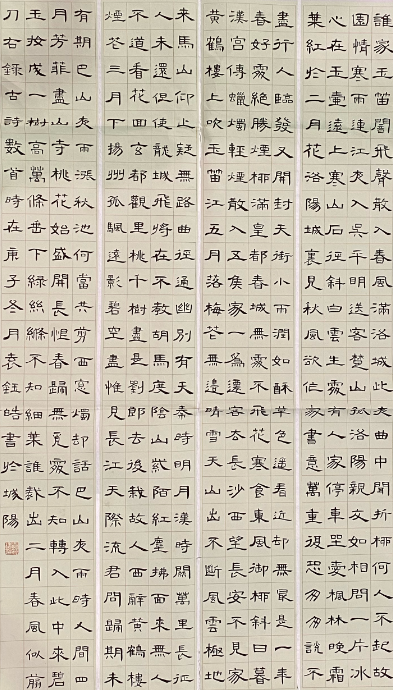 誰家玉笛闇飛聲散入春風滿洛城此夜曲中聞折柳何人不起故
園情寒雨連江夜入吳平明送客楚山孤洛陽親友如相問一片冰
心在玉壺遠上寒山石徑斜白雲生處有人家停車坐愛楓林晚霜
葉紅於二月花洛陽城裏見秋風欲作家書意萬重復恐匆匆說不
盡行人臨發又開封天街小雨潤如酥草色遙看近卻無最是一年
春好處絕勝煙柳滿皇都春城無處不飛花寒食東風御柳斜日暮
漢宮傳蠟燭輕煙散入五侯家一為遷客去長沙西望長安不見家
黃鶴樓上吹玉笛江五月落梅花無邊晴雪天山出不斷風雲極地
來馬山仰止疑無路曲徑通幽別有天秦時明月漢時關萬里長征
人未還但使龍城飛將在不教胡馬度陰山紫陌紅塵拂面來無人
不道看花回玄都觀里桃千樹盡是劉郎去後栽故人西辭黃鶴樓
煙花三月下揚州孤帆遠影碧空盡惟見長江天際流君問歸期未
有期巴山夜雨漲秋池何當共剪西窗燭卻話巴山夜雨時人間四
月芳菲盡山寺桃花始盛開長恨春歸無覓處不知轉入此中來碧
玉妝成一樹高萬條垂下綠絲絛不知細葉誰裁出二月春風似剪
刀右錄古詩數首時在庚子冬月袁鈺皓書於城陽